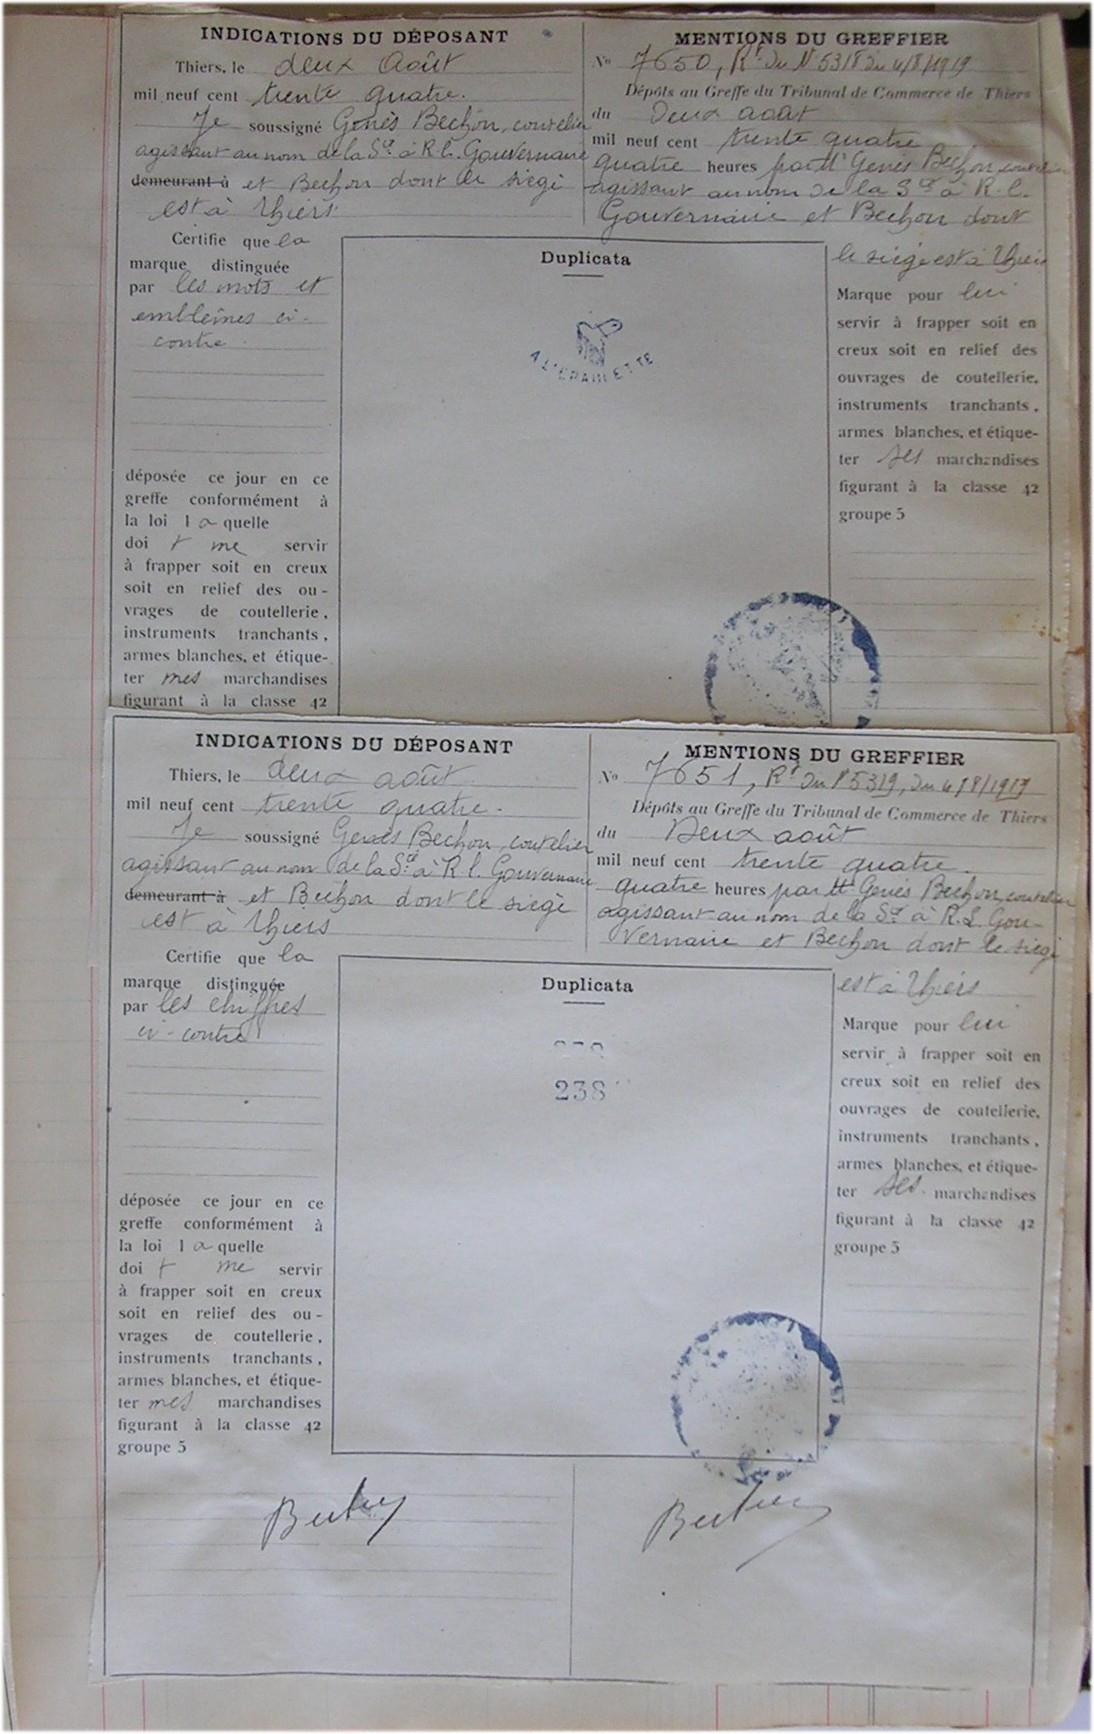 INDICATIONS DU DÉPOSANT
Thiers, le deux Août
mil neuf cent trente quatre.
Je soussigné Genès Bechon, coutelier
agissant au nom de la Sté à R.l. Gouvernaire
demeurant à et Bechon dont le siège
est à Thiers
Certifie que la
marque distinguée
par les mots et
emblèmes ci-
contre
déposée ce jour en ce
greffe conformément à
la loi laquelle
doit me servir
à frapper soit en creux
soit en relief des ou-
vrages de coutellerie,
instruments tranchants,
armes blanches, et étique-
ter mes marchandises
figurant à la classe 42
Duplicata
A L'EPAULETTE
MENTIONS DU GREFFIER
No 7650, Rt du No 5318 du 4/8/1919
Dépôts au Greffe du Tribunal de Commerce de Thiers
du Deux août
mil neuf cent trente quatre
quatre heures par Mr Genès Bechon, coutelier
agissant au nom de la Sté à R.l.
Gouvernaire et Bechon dont
le siège est à Thiers
Marque pour lui
servir à frapper soit en
creux soit en relief des
ouvrages de coutellerie,
instruments tranchants,
armes blanches, et étique-
ter ses marchandises
figurant à la classe 42
groupe 5
INDICATIONS DU DÉPOSANT
Thiers, le deux août
mil neuf cent trente quatre.
Je soussigné Genès Bechon, coutelier
agissant au nom de la Sté à R l. Gouvernaire
demeurant à et Bechon dont le siège
est à Thiers
Certifie que la
marque distinguée
par les chiffres
ci-contre
déposée ce jour en ce
greffe conformément à
la loi laquelle
doit me servir
à frapper soit en creux
soit en relief des ou-
vrages de coutellerie,
instruments tranchants,
armes blanches, et étique-
ter mes marchandises
figurant à la classe 42
groupe 5
Duplicata
238
MENTIONS DU GREFFIER
No 7651, Rt du No 5319, du 4/8/1919
Dépôts au Greffe du Tribunal de Commerce de Thiers
du Deux août
mil neuf cent trente quatre
quatre heures par Mr Genès Bechon, coutelier
agissant au nom de la Sté à R.L. Gou-
vernaire et Bechon dont le siège
est à Thiers
Marque pour lui
servir à frapper soit en
creux soit en relief des
ouvrages de coutellerie,
instruments tranchants,
armes blanches, et étique-
ter ses marchandises
figurant à la classe 42
groupe 5